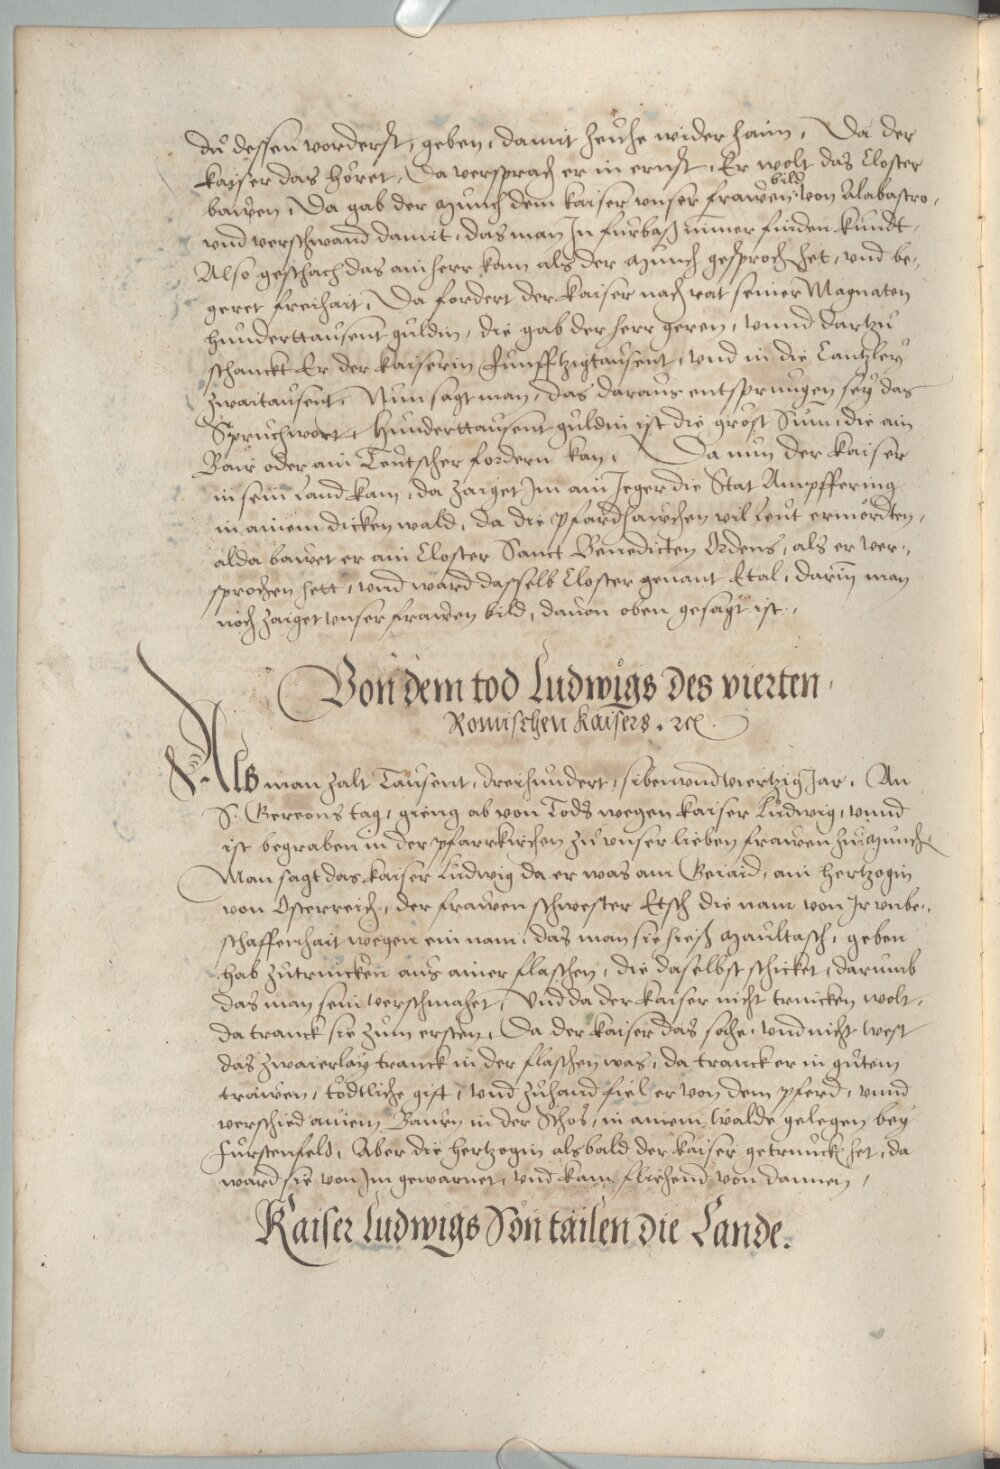 du dessen vorderst, geben, damit zeuche wider haim. Da der
kaiser das höret, Da versprach er in ernst, Er wolt das Closter
bawen, Da gab der Münch dem kaiser unser frawen bild von Alabastro,
und verschwand damit, das man In fürbaß nimer finden kundt,
Also geschach das ain herr kam als der Münch gesproch. het, und be-
geret freihait, Da fordert der kaiser nach rat seiner Magnaten
hunderttausent guldin, die gab der herr geren, unnd dartzu
schanckt Er der kaiserin Funfftzigtausent, und in die Cantzley
zwaitausent, Nun sagt man, das daraus entsprungen sey das
Spruchwort, Hunderttausent guldin ist die gröst Sum, die ain
Bair oder ain Teutscher fordern kan, Da nun der kaiser
in sein Land kam, da zaiget Im ain Jeger die Stat Ampffering
in ainem dicken wald, da die vil Leut ermördten,
alda bawet er ain Closter Sanct Benedicten Ordens, als er ver-
sprochen hett, und ward dasselb Closter genant Etal, darin man
noch zaiget unser frawen bild, davon oben gesagt ist.
Von dem tod Ludwigs des vierten
Romischen Kaisers. rc.
Als man zalt Tausent, dreihundert, siben und viertzig Jar, An
S. Gereons tag, gieng ab von Tods wegen kaiser Ludwig, unnd
ist begraben in der pfarrkirchen zu unser lieben frawen zu Münch.
Man sagt das kaiser Ludwig da er was am Geiaid, ain hertzogin
von Osterreich, der frawen schwester Etsch die nam von Ir unbe-
schaffenhait wegen ein nam, das man sie hieß Maultasch, geben
hab zutrincken aus ainer flaschen, die daselbst schicket, darumb
das man sein verschmahet, Und da der kaiser nicht trincken wolt,
da tranck sie zum ersten, Da der kaiser das sahe, und nicht west
das zwaierlay tranck in der flaschen was, da tranck er in gutem
trawen, tödtliche gift, und zuhand fiel er von dem pferd, unnd
verschied ainem Baurn in der Schos, in ainem Walde gelegen bey
Furstenfeld, Aber die hertzogin alsbald der kaiser getrunck. het, da
ward sie von Im gewarnet, und kam fliehend von dannen,
Kaiser Ludwigs Sön tailen die Lande.